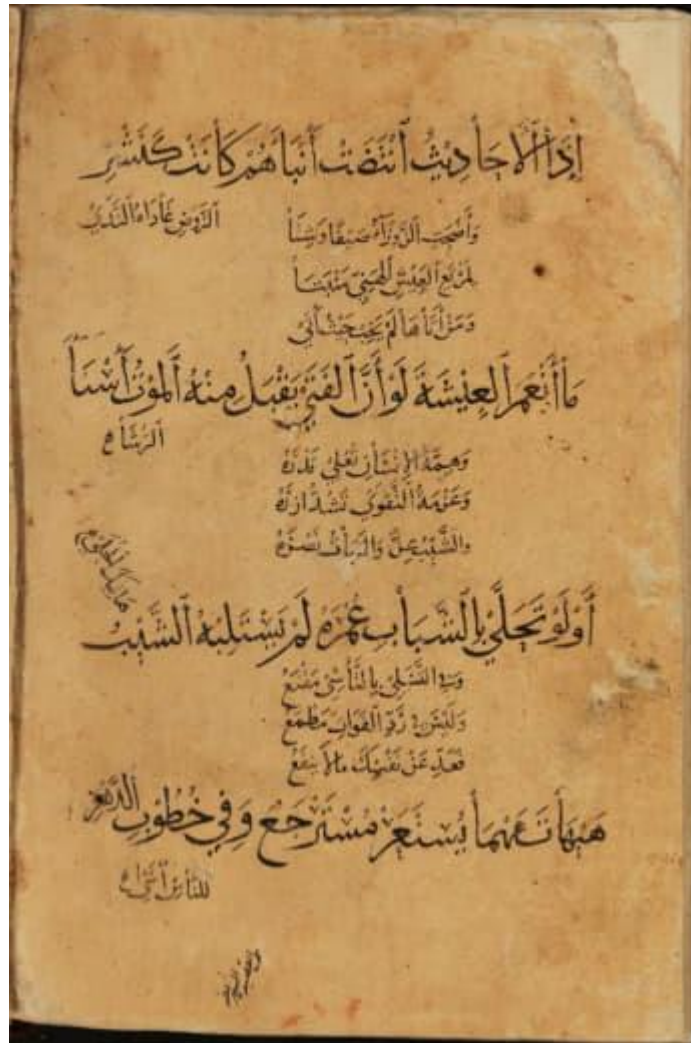 إذا الأحاديث انتضت أنباءهم كانت كنشر
الروض غاداه الندى
وأضحت الزوراء صيفا وشتا
لمربع العيش الهني منبتا
ومن أتاها لم يخب حيث أتى
ما أنعم العيشة لو أن الفتى يقبل منه الموت أسناء
الرشاء
وهمة الإنسان تعلي قدره
وعزمة التقوى تشد أزره
والشيب والشباب
أو لو تحلى بالشباب عمره لم يستلبه الشيب
هاتيك الحلى
وفي التسلي بالتأسي مقنع
وليس في رد الفوات مطمع
فعد عن نفسك ما لا ينفع
هيهات مهما يستعر مسترجع وفي خطوب الدهر
للناس أسى